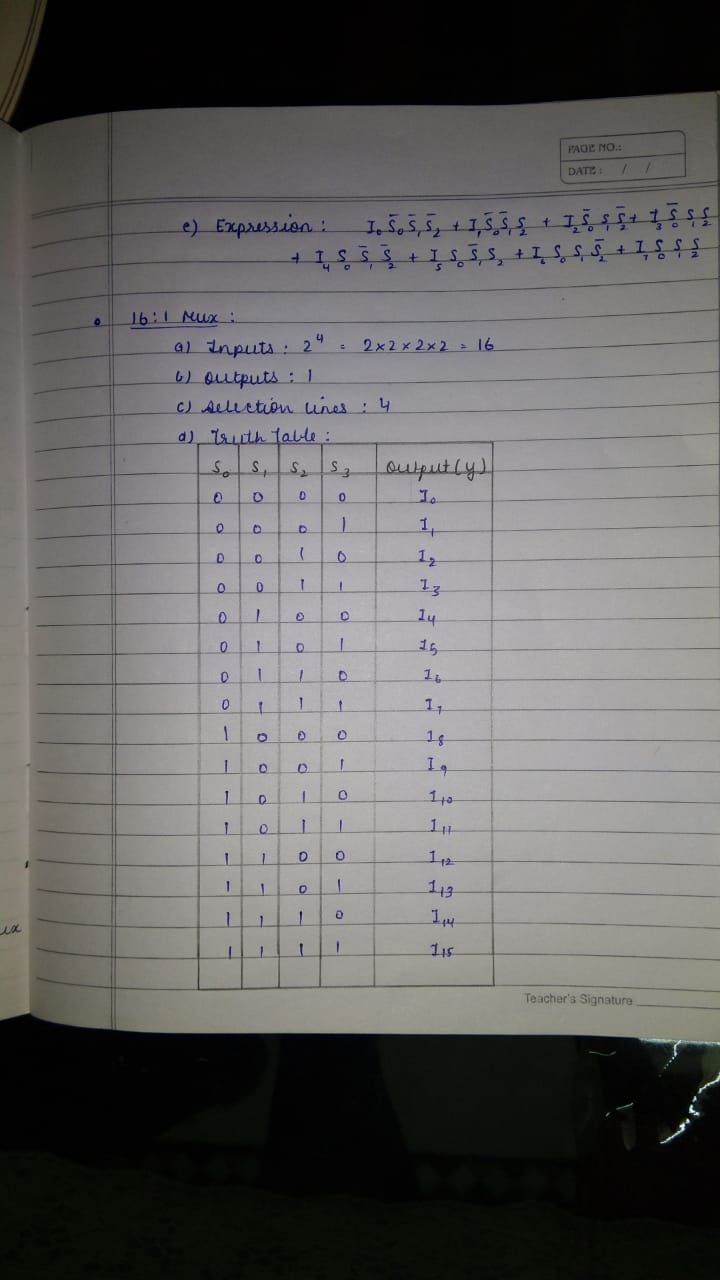 PAGE NO.:
DATE: / /
e) Expression : I₀ S̄₀ S̄₁ S̄₂ + I₁ S̄₀ S̄₁ S₂ + I₂ S̄₀ S₁ S̄₂ + I₃ S̄₀ S₁ S₂
+ I₄ S₀ S̄₁ S̄₂ + I₅ S₀ S̄₁ S₂ + I₆ S₀ S₁ S̄₂ + I₇ S₀ S₁ S₂
16:1 Mux :
a) Inputs : 2⁴ = 2x2x2x2 = 16
b) outputs : 1
c) selection lines : 4
d) Truth Table :
S₀ S₁ S₂ S₃ Output (y)
0 0 0 0 I₀
0 0 0 1 I₁
0 0 1 0 I₂
0 0 1 1 I₃
0 1 0 0 I₄
0 1 0 1 I₅
0 1 1 0 I₆
0 1 1 1 I₇
1 0 0 0 I₈
1 0 0 1 I₉
1 0 1 0 I₁₀
1 0 1 1 I₁₁
1 1 0 0 I₁₂
1 1 0 1 I₁₃
1 1 1 0 I₁₄
1 1 1 1 I₁₅
Teacher's Signature